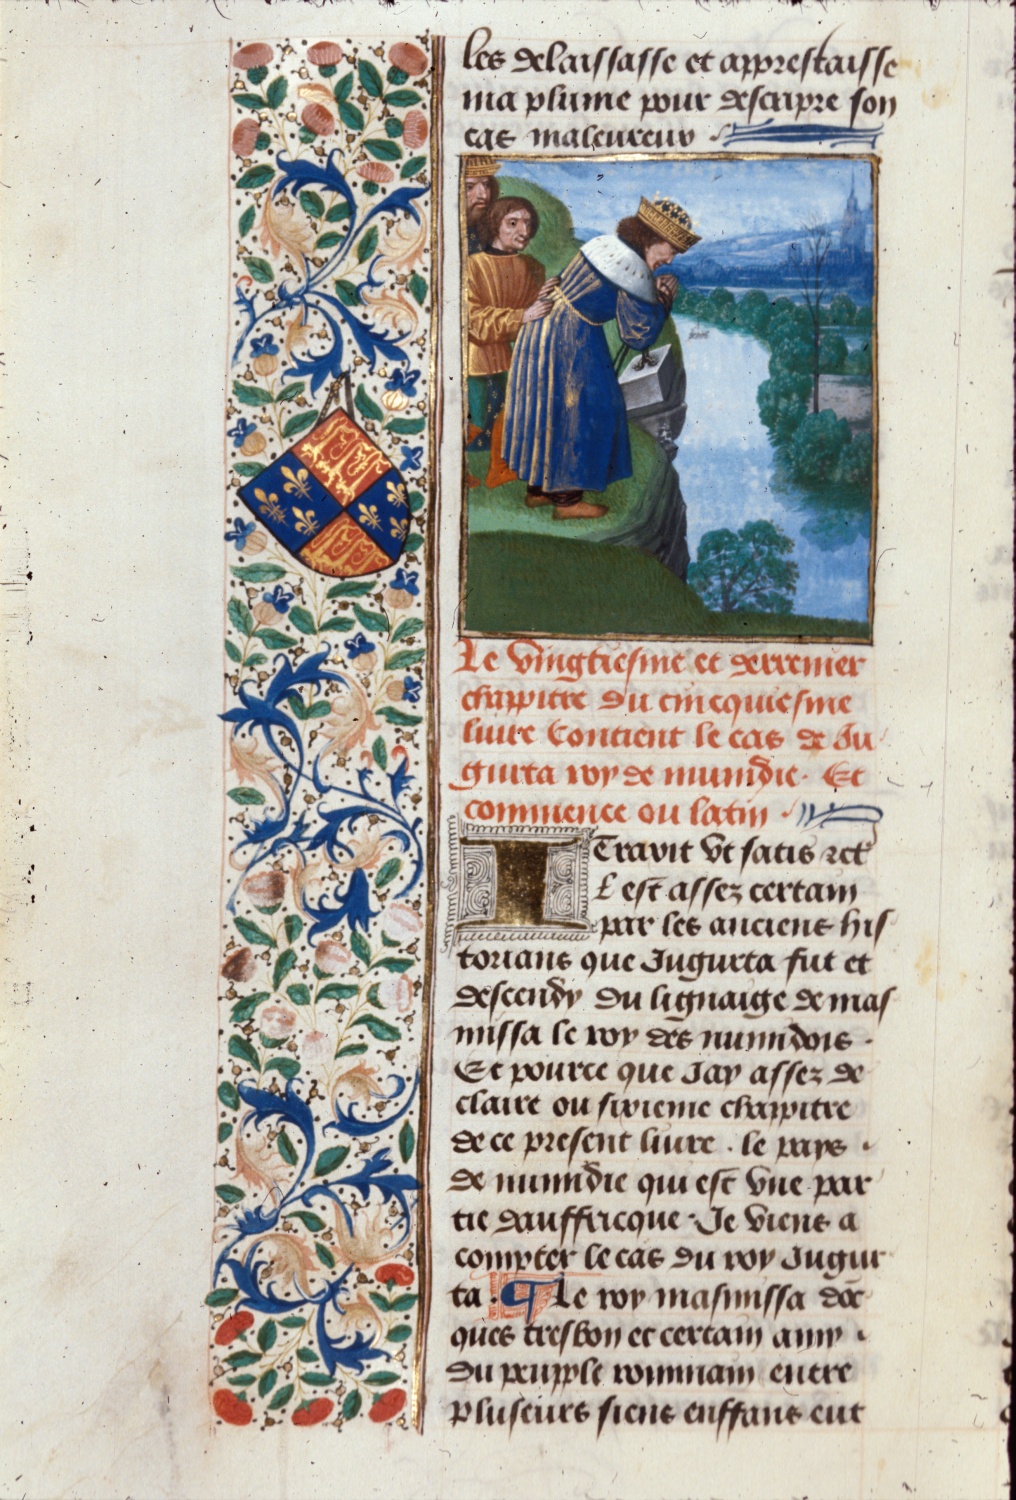 les delaissasse et apprestaisse
ma plume pour descripre son
cas maleureux
Le vingtiesme et derrenier
chappitre du cincquiesme
livre Contient le cas de Ju
gurta roy de numidie. Et
commence ou latin.
ITravit vt satis ꝛcꝭ
Il est assez certain
par les anciens his
torians que Jugurta fut et
descendy du lignaige de mas
nissa le roy des numidois.
Et pource que Jay assez de
claire ou sixieme chappitre
de ce present livre. le pays
de numidie qui est vne par
tie dauffricque. Je viens a
compter le cas du roy Jugur
ta. ¶ Le roy masinissa dõc
ques tresbon et certain amy
du peuple rommain entre
pluseurs siens enffans eut